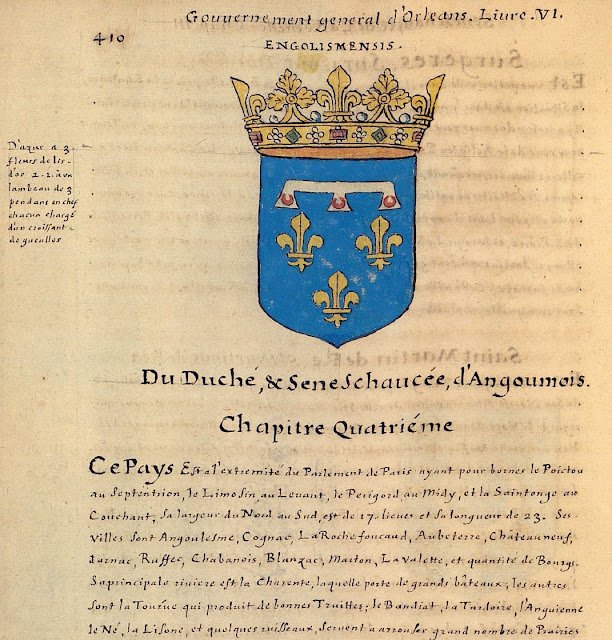 Gouvernement general d'Orleans. Livre. VI.
410
ENGOLISMENSIS.
D'azur a 3
fleurs de lis
d'or 2. 1. à un
lambeau de 3
pendans en chef
chacun chargé
d'un croissant
de gueulles
Du Duché, & Seneschaucée, d'Angoumois.
Chapitre Quatriéme
Ce Pays Est a l'extremité du Parlement de Paris ayant pour bornes le Poictou
au Septentrion, le Limosin au Levant, le Perigord au Midy, et la Saintonge au
Couchant, sa largeur du Nord au Sud, est de 17. lieues et sa longueur de 23. Ses
Villes sont Angoulesme, Cognac, La Rochefoucaud, Aubeterre, Châteauneuf,
Jarnac, Ruffec, Chabanois, Blanzac, Marton, La Valette, et quantité de Bourgs.
Sa principale riviere est la Charente, laquelle porte de grands bâteaux; les autres
sont la Touvue qui produit de bonnes Truittes; le Bandiat, la Tardoire, l'Anguienne
le Né, la Lisone, et quelques ruisseaux, servent a arrouser grand nombre de Prairies